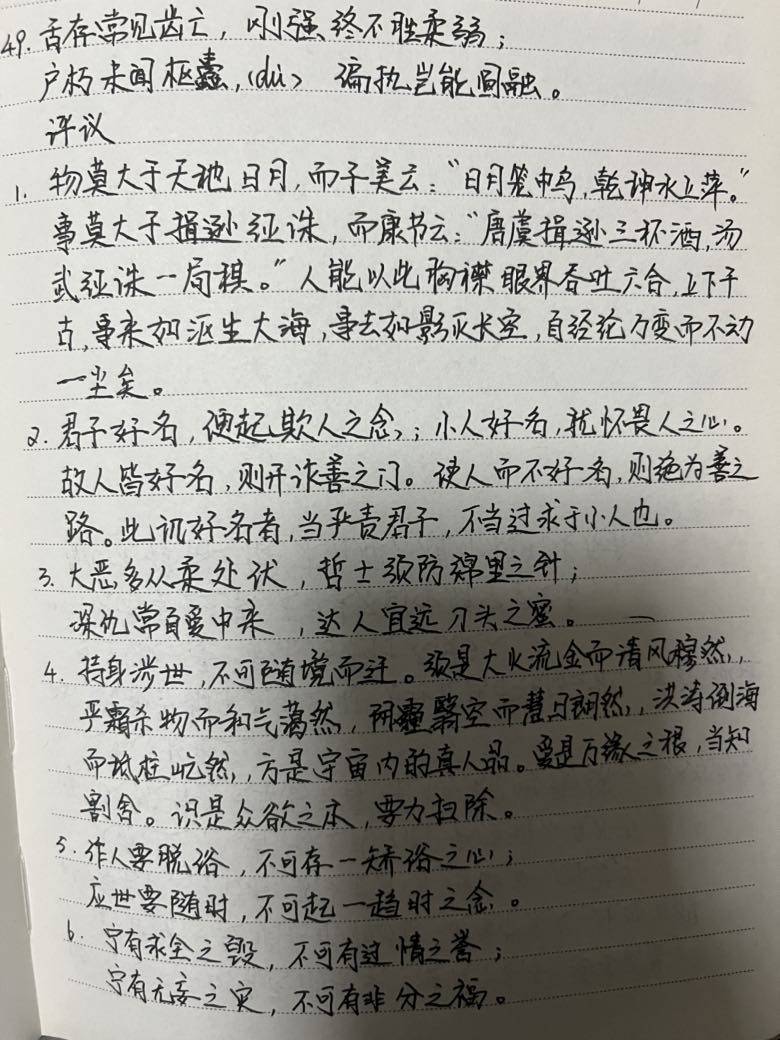 49. 舌存常见齿亡，刚强终不胜柔弱；
户朽未闻枢蠹，(dù) 偏执岂能圆融。
评议
1. 物莫大于天地日月，而子美云：“日月笼中鸟，乾坤水上萍。”
事莫大于揖逊征诛，而康节云：“唐虞揖逊三杯酒，汤
武征诛一局棋。”人能以此胸襟眼界吞吐六合，上下千
古，事来如沤生大海，事去如影灭长空，自经纶万变而不动
一尘矣。
2. 君子好名，便起欺人之念；小人好名，犹怀畏人之心。
故人皆好名，则开诈善之门。使人而不好名，则绝为善之
路。此讥好名者，当严责君子，不当过求于小人也。
3. 大恶多从柔处伏，哲士须防绵里之针；
深仇常自爱中来，达人宜远刀头之蜜。
4. 持身涉世，不可随境而迁。须是大火流金而清风穆然，
严霜杀物而和气蔼然，阴霾翳空而慧日朗然，洪涛倒海
而砥柱屹然，方是宇宙内的真人品。爱是万缘之根，当知
割舍。识是众欲之本，要力扫除。
5. 作人要脱俗，不可存一矫俗之心；
应世要随时，不可起一趋时之念。
6. 宁有求全之毁，不可有过情之誉；
宁有无妄之灾，不可有非分之福。